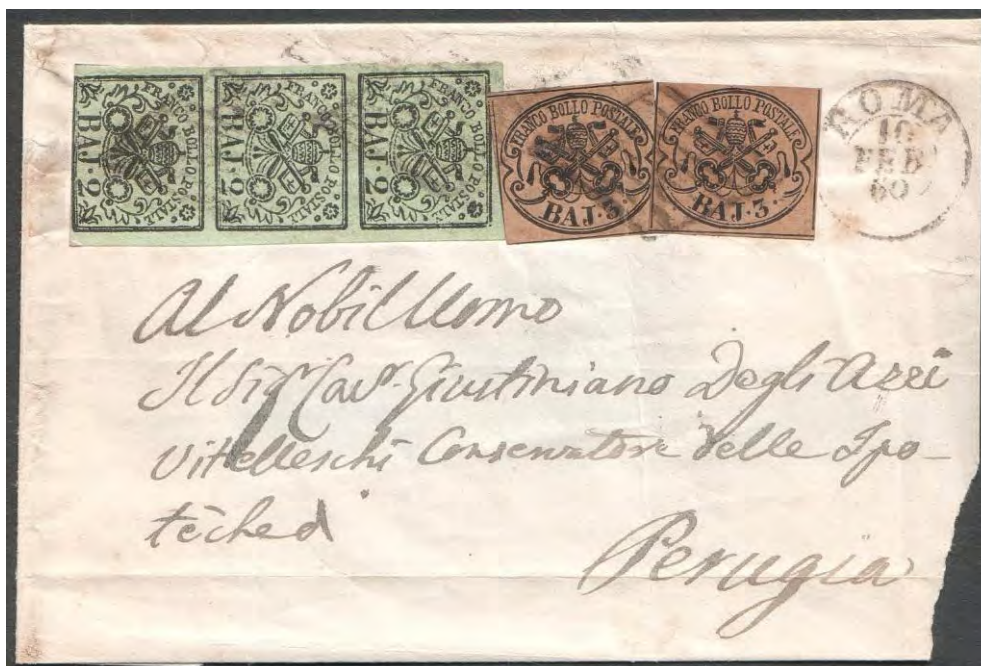 FRANCO BOLLO POSTALE
BAJ. 2
FRANCO BOLLO POSTALE
BAJ. 2
FRANCO BOLLO POSTALE
BAJ. 2
FRANCO BOLLO POSTALE
BAJ. 3
FRANCO BOLLO POSTALE
BAJ. 3
ROMA
10
FEB
60
Al Nobil Uomo
Il Sigr Cavr. Giustiniano Degli Azzi
Vitelleschi Conservatore delle Ipo-
teche
Perugia